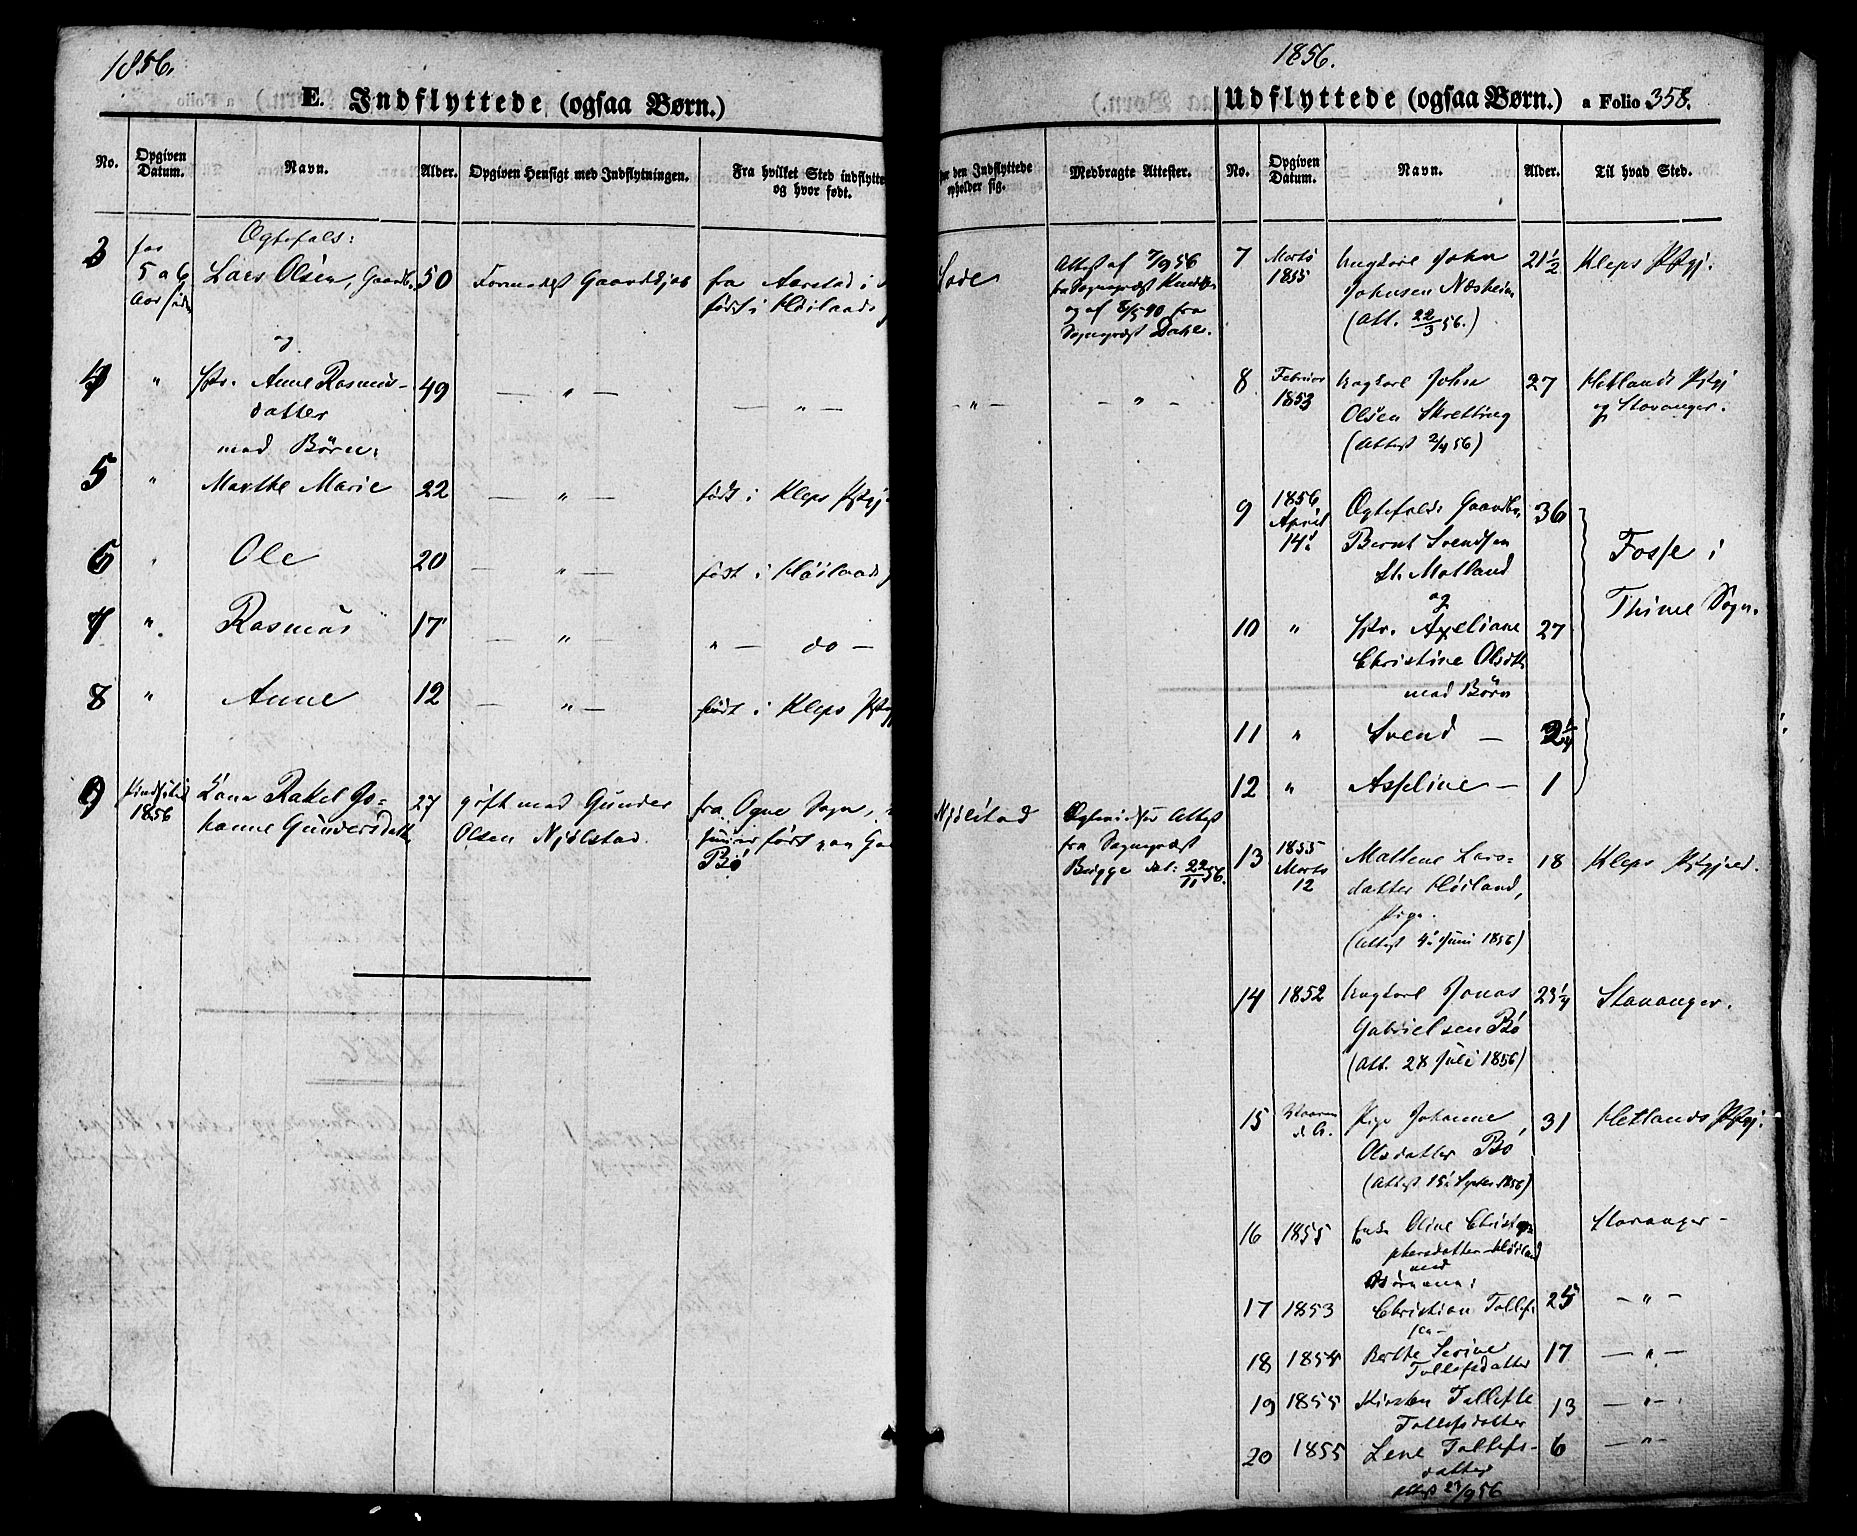 1856.
E. Indflyttede (ogsaa Børn.)
No.
Opgiven
Datum.
Navn.
Alder.
Opgiven Hensigt med Indflytningen.
Fra hvilket Sted indflytte
og hvor født.
3
for
5 a 6
Aar siden
Ægtefolk:
Lars Olsen, Gaardb.
50
fra Aarstad i
født i Høilands
og
4
"
Anne Rasmus-
datter
49
— " —
— " —
med Børn:
5
"
Marthe Marie
22
— " —
født i Kleps Pstgj
6
"
Ole
20
— " —
født i Høilands
7
"
Rasmus
17
— " —
" — do —
8
"
Anne
12
— " —
født i Kleps
9
1856
Kone Rakel Jo=
hanne Gundersdatt
27
gift med Gunder
Olsen Njølstad.
fra Ogne Sogn,
født paa
Bø
1856.
Udflyttede (ogsaa Børn.)
a Folio 358.
hvor den Indflyttede
opholder sig.
Medbragte Attester.
No.
Opgiven
Datum.
Navn.
Alder.
Til hvad Sted.
Attest af 7/9 56
fra Sognepræst
og af 8/5 40 fra
Sognepræst Dahl.
— " —
— " —
Njølstad
Attest
fra Sognepræst
Bugge dat: 22/11 56.
7
Marts
1855
Ungkarl John
Johnsen Næsheim
(Att. 22/3 56.)
21 1/2
Kleps Pstgj.
8
Februar
1853
Ungkarl John
Olsen Skretting
(Attest 2/4 56)
27
Hetlands Pstgj
og Stavanger.
9
1856
April
14d
Ægtefolk: Gaardb.
Bernt Svendsen
St. Motland
36
Fosse i
Thime Sogn.
og
10
"
Axeliane
Christine Olsdtr
27
med Børn
11
"
Svend —
2 1/4
12
"
Asseline —
1
13
1855
Marts
12
Maltene Lars=
datter Høiland,
Pige.
(Attest 4d Juni 1856)
18
Kleps Pstgjæld.
14
1852
Ungkarl Jonas
Gabrielsen Bø
(Att. 28 Juli 1856)
23 1/4
Stavanger.
15
Vaaren
d. A.
Pige Johanne
Olsdatter Bø
(Attest 15d Septer 1856)
31
Hetlands Pstgj.
16
1855
Enke Oline Christo
phersdatter Høiland
med
Børnene:
Stavanger —
17
1853
Christian Tollef-
sen —
25
— " —
18
1854
Berthe Serine
Tollefsdatter
17
— " —
19
1855
Kirsten Tollefte
Tollefsdatter
13
— " —
20
1855
Lene Tollefs-
datter
6
— " —
Attest 29/9 56